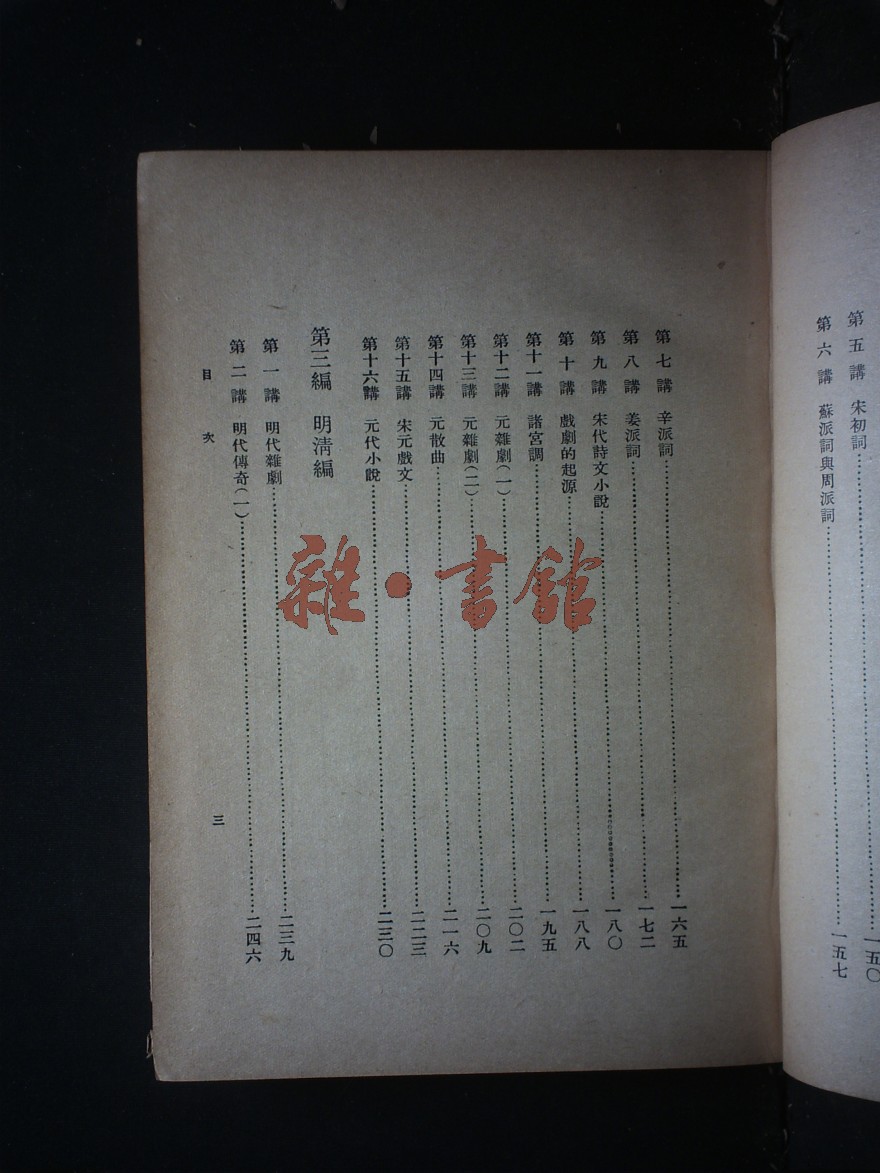 第五講　宋初詞……一五〇
第六講　蘇派詞與周派詞……一五七
第七講　辛派詞……一六五
第八講　姜派詞……一七二
第九講　宋代詩文小說……一八〇
第十講　戲劇的起源……一八八
第十一講　諸宮調……一九五
第十二講　元雜劇(一)……二〇二
第十三講　元雜劇(二)……二〇九
第十四講　元散曲……二一六
第十五講　宋元戲文……二二三
第十六講　元代小說……二三〇
第三編　明清編
第一講　明代雜劇……二三九
第二講　明代傳奇(一)……二四六
目次　三
雜·書館